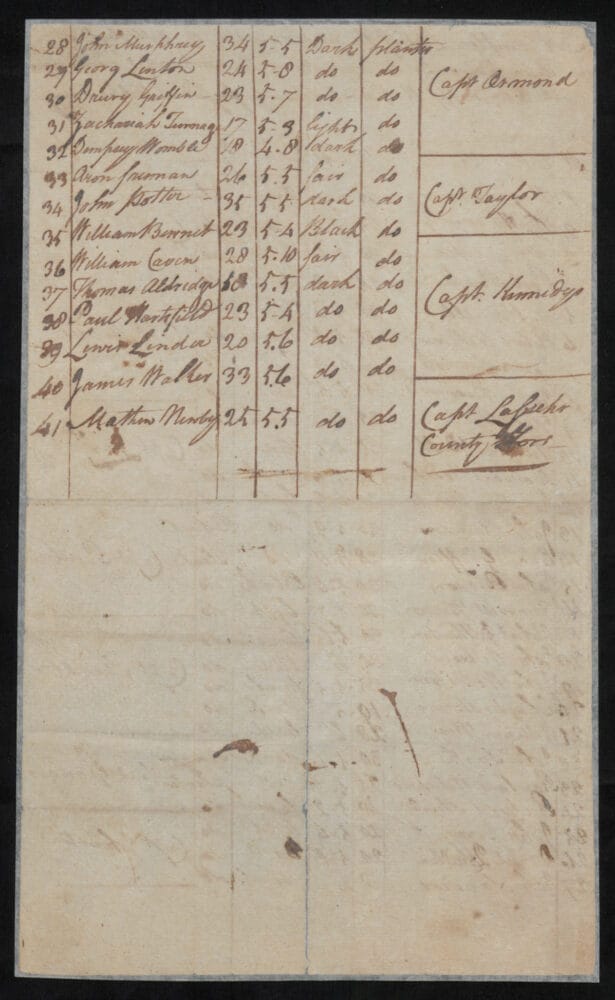 28 John Murphrey 34 5-5 Dark planter
29 Georg Linton 24 5-8 do do
Capt Ormond
30 Drury Griffin 23 5.7 do do
31 Zachariah Turnage 17 5-3 light do
32 Dempsey Womble 18 4-8 dark do
33 Aron freeman 26 5.5 fair do
34 John Potter 35 5 5 dark do
Capt Taylor
35 William Bennet 23 5-4 Black do
36 William Caven 28 5-10 fair do
37 Thomas Aldridge 5.5 dark do
Capt. Kennidys
38 Paul Hartfield 23 5-4 do do
39 Lewis Linder 20 5.6 do do
40 James Walker 33 5.6 do do
41 Mathew Newby 25 5.5 do do
Capt
County